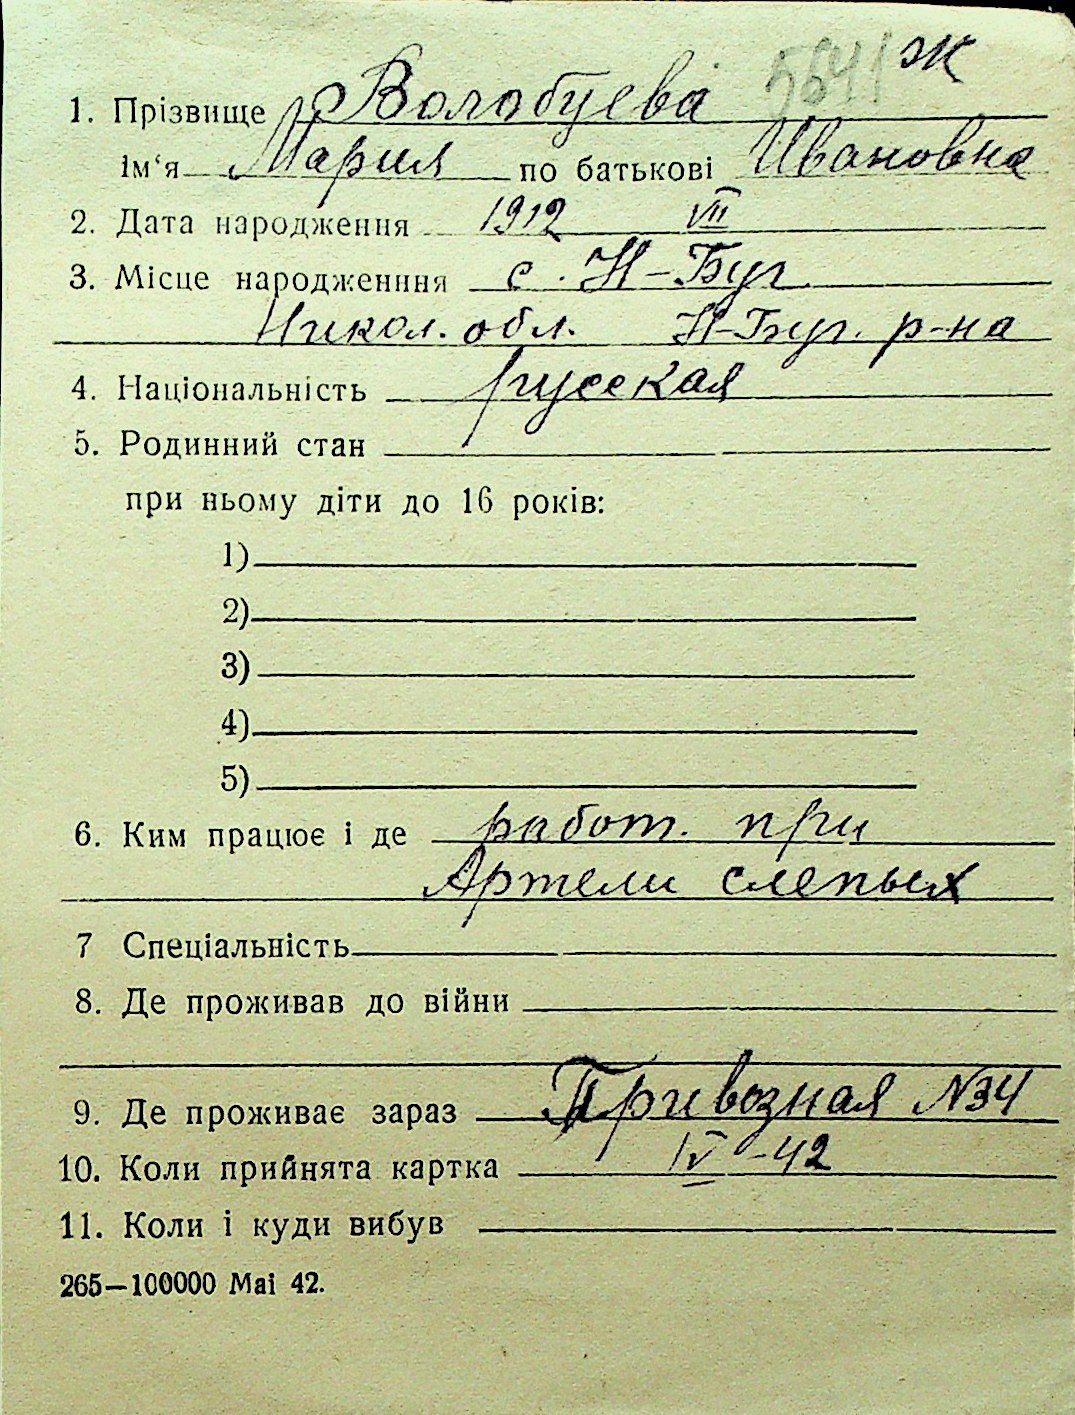 5641 Ж
1. Прізвище Волобуєва
ім‘я Мария по батькові Ивановна
2. Дата народження 1912 VII
3. Місце народженння с. Н-Буг
Никол. обл. Н-Буг. р-на
4. Національність русская
5. Родинний стан
при ньому діти до 16 років:
1)
2)
3)
4)
5)
6. Ким працює і де работ. при
Артели слепых
7 Спеціальність
8. Де проживав до війни
9. Де проживає зараз Привозная №34
10. Коли прийнята картка IV-42
11. Коли і куди вибув
265—100000 Маі 42.